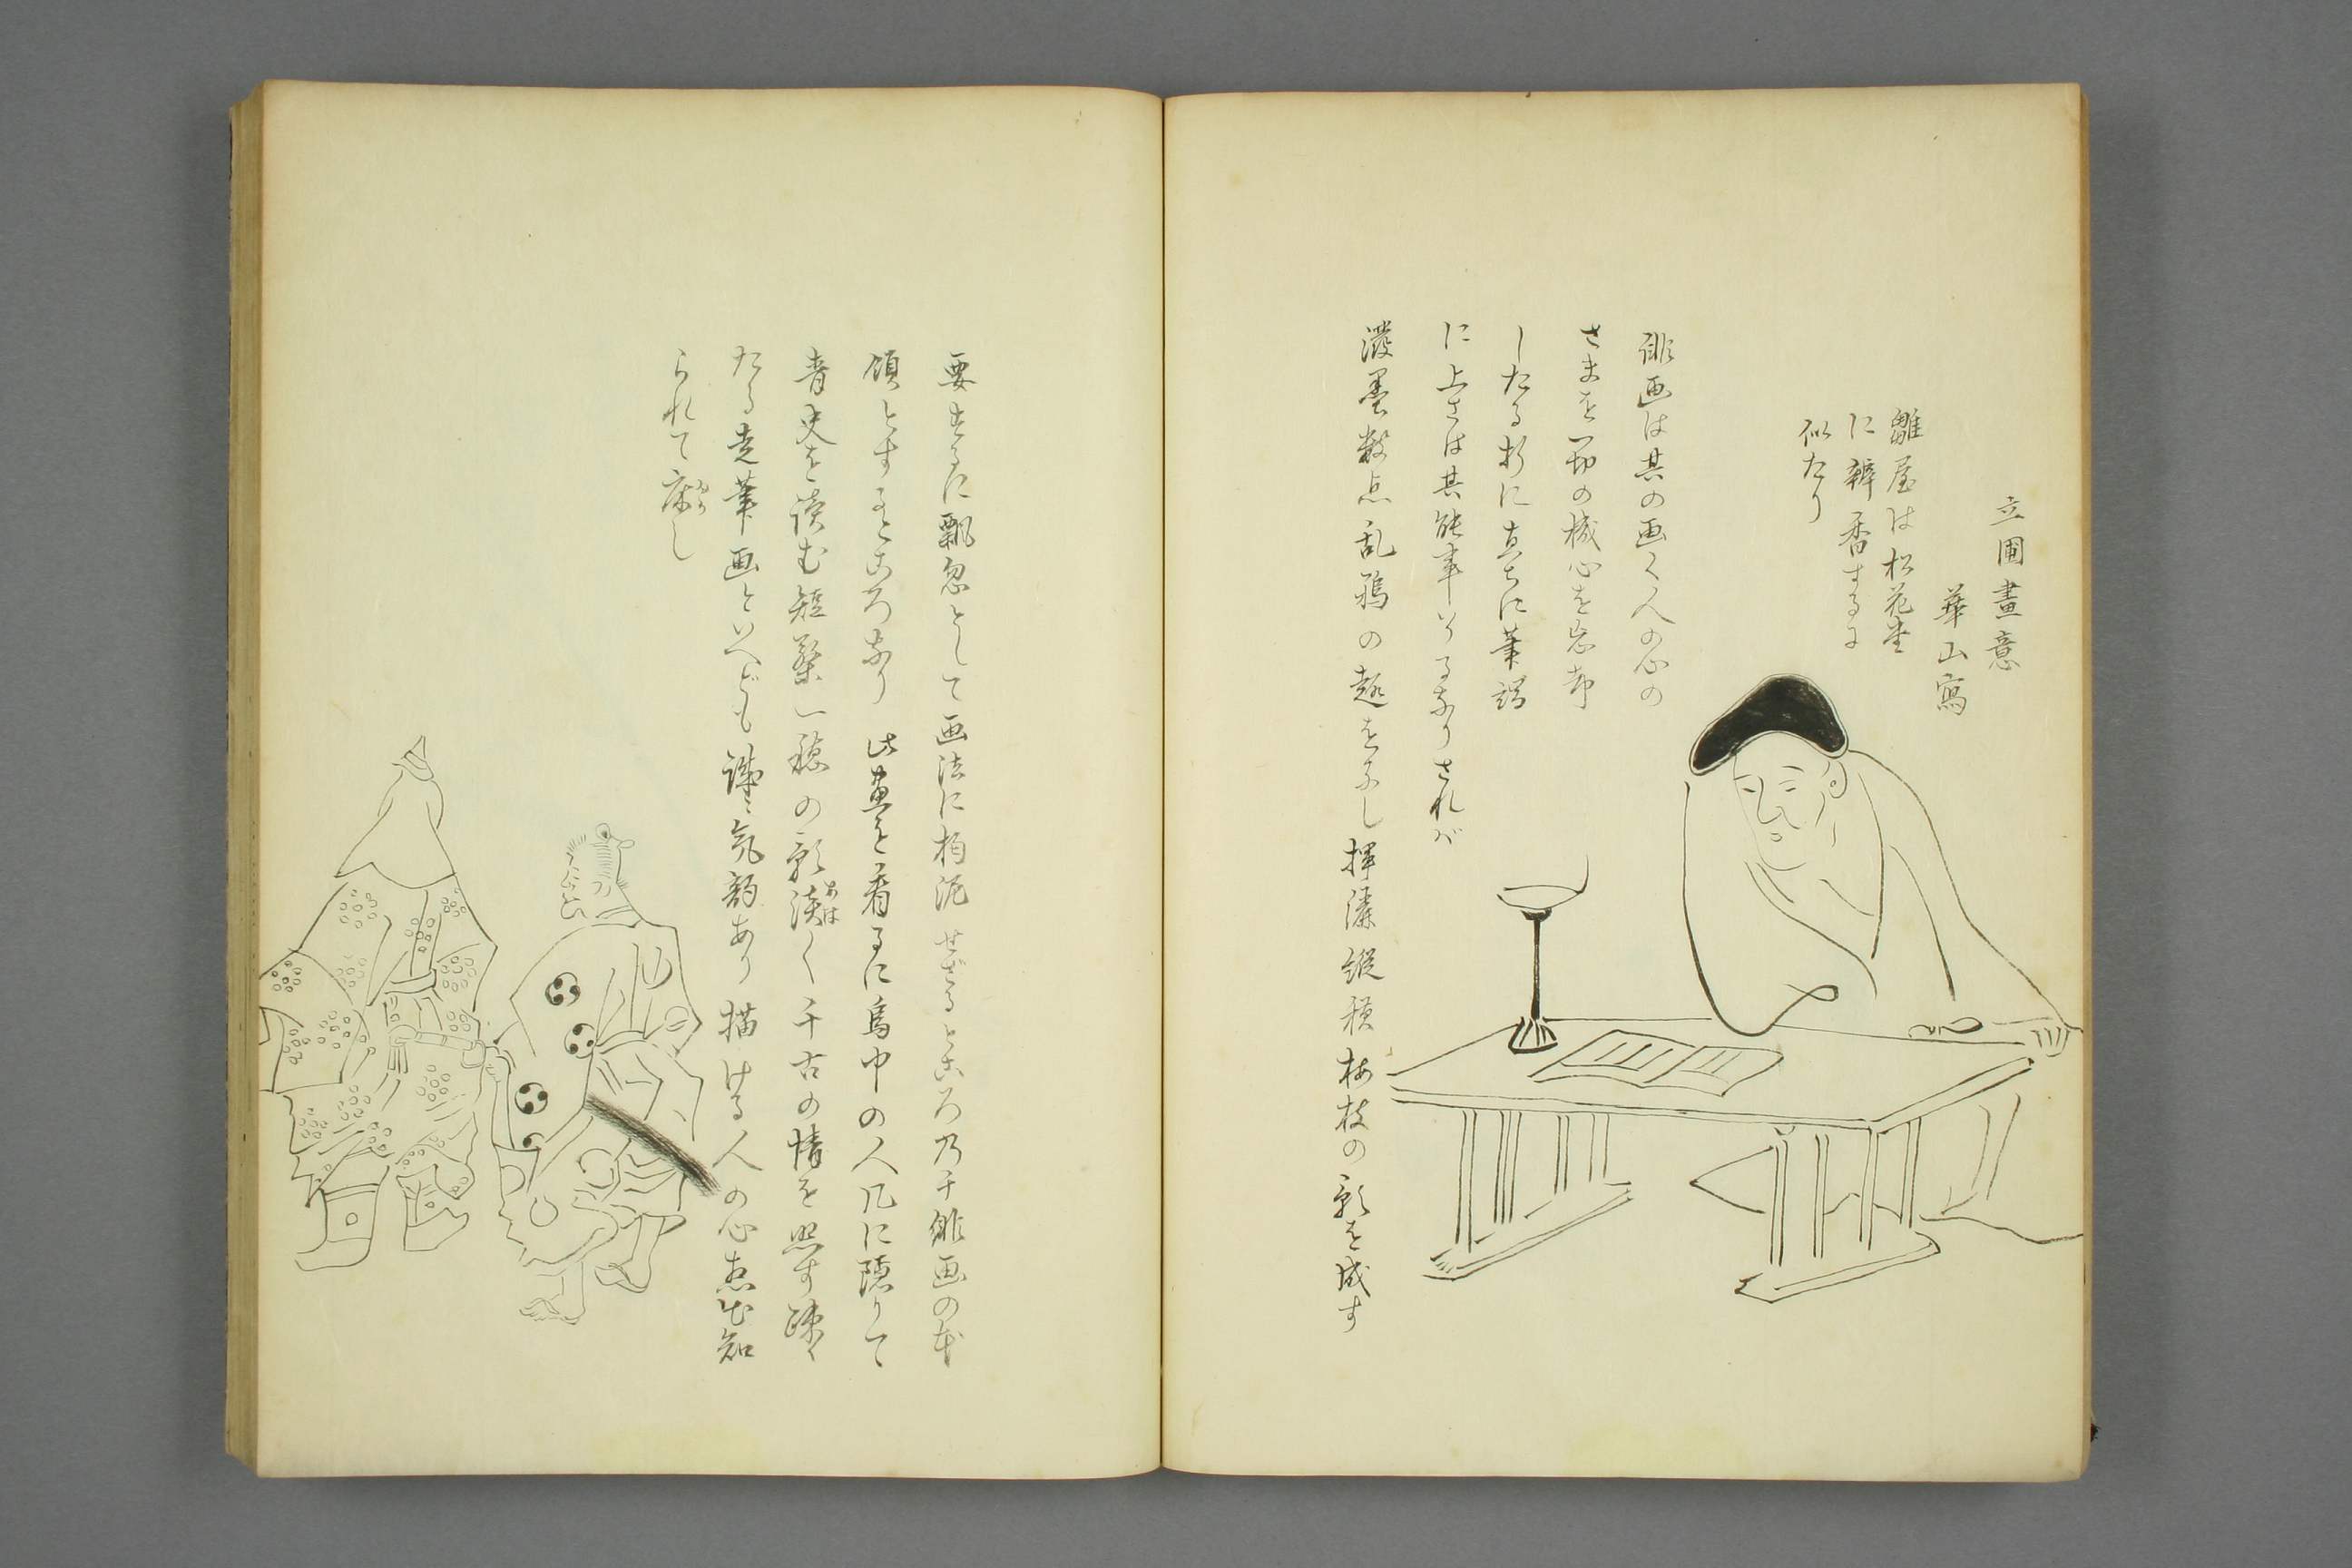 立圃畫意
華山寫
雛屋は松花堂
に瓣香するに
似たり
俳画は其の画く人の心の
さまを一切の機心を忘却
したる折に直ちに筆端
に上さは其能事いるなりされば
潑墨數点乱鴉の趣をなし揮灑縦横梅枝の影を成す
要するに飄忽として画法に拘泥せざるところ乃チ俳画の本
領とするところなり此畫を看るに烏巾の人几に隠りて
青史を讀む短檠一穂の影淡く千古の情を照す疎々
あは
たる走筆画といへども謹々気韵あり描ける人の心志も知
られて床し
ゆか